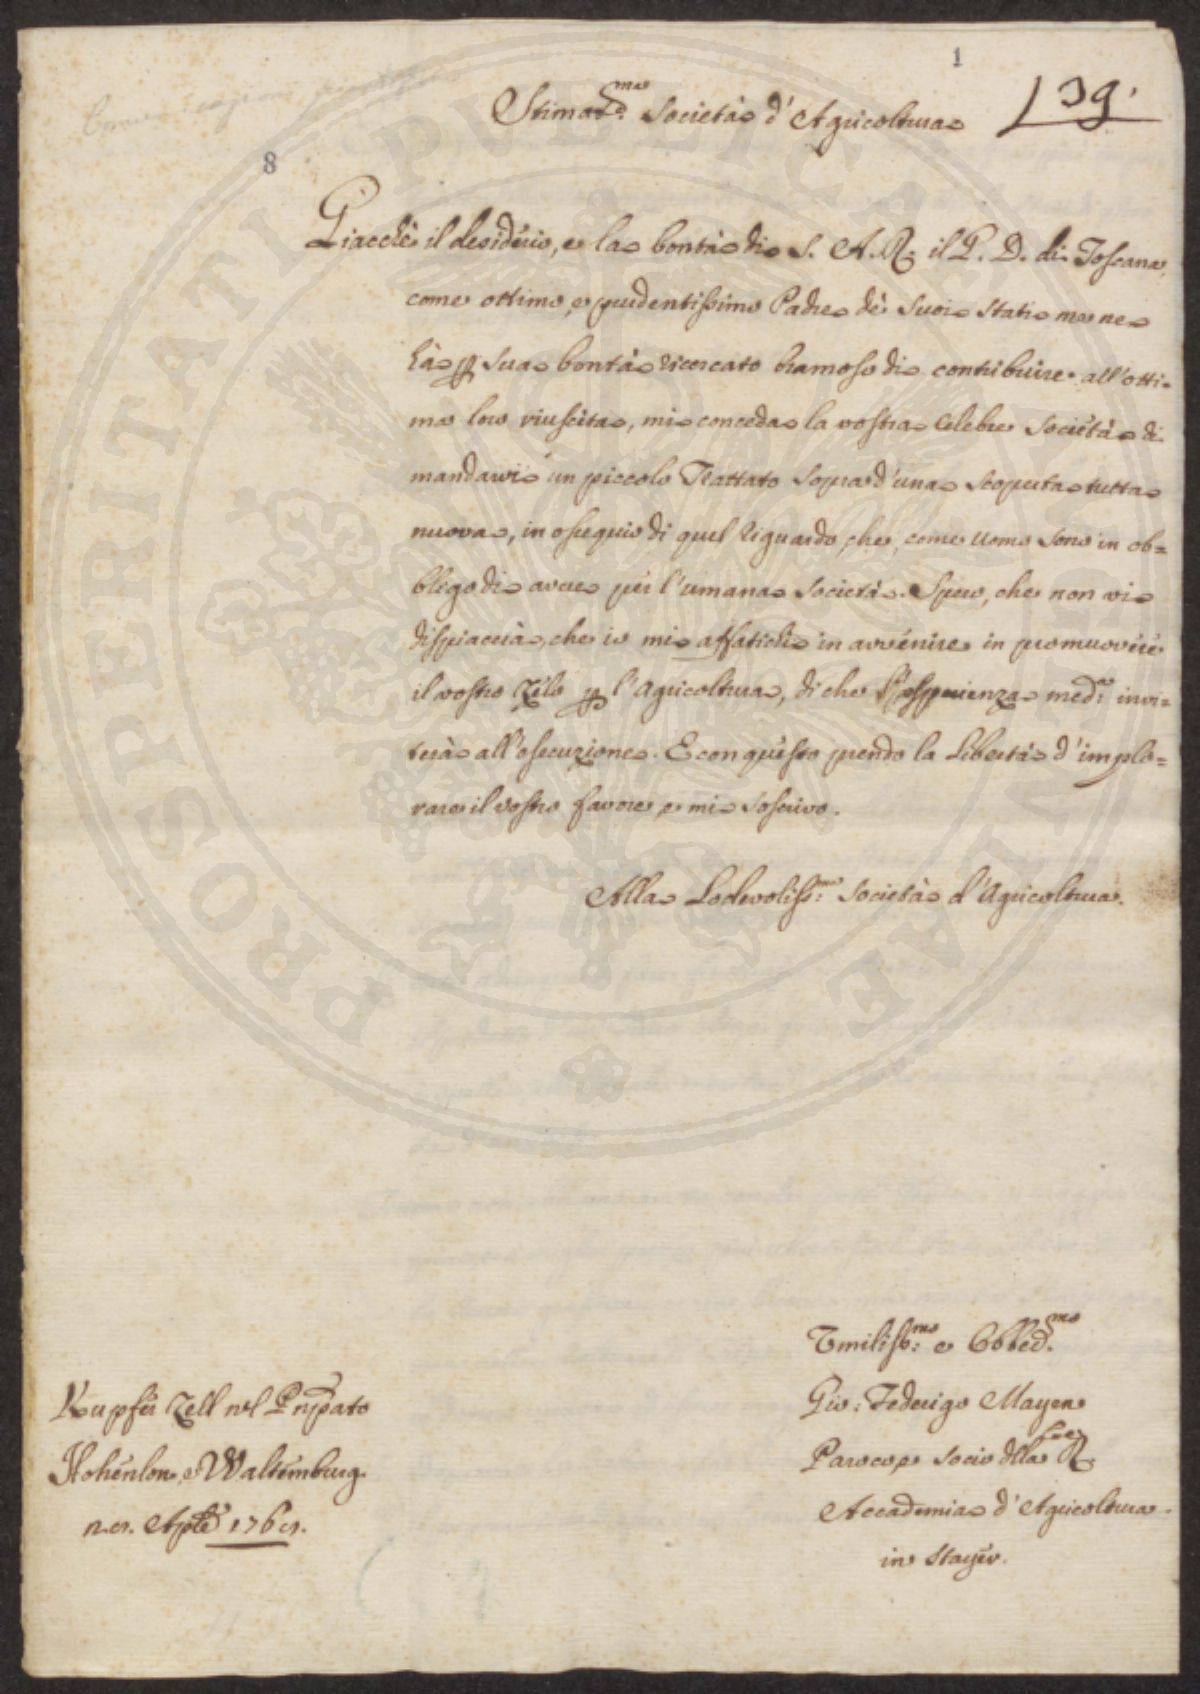 1
Stimat.ma Società d'Agricoltura
139.
8
Giacchè il desidério, e la bontà di S. A. R. il G. D. di Toscana,
come ottimo, e prudentissimo Padre dè Suoi Stati me ne
hà p Sua bontà ricercato bramoso di contribuire all'otti-
ma loro riuscita, mi conceda la vostra Celebre Società di
mandarvi un piccolo Trattato sopra d'una scoperta tutta
nuova, in ossequio di quel riguardo, che, come Uomo sono in ob=
bligo di avere pér l'umana Società. Spero, che non vi
dispiaccia, che io mi affatichi in avvénire in promuovere
il vostro Zélo p l'Agricoltura, di che l'esperienza med.ma invi=
terà all'esecuzione. E con questo prendo la Libertà d'implo=
rare il vostro favore, e mi soscrivo.
Alla Lodevoliss.ma Società d'Agricoltura.
Vmiliss.mo e Obbed.mo
Gio: Federigo Mayer
Paroco, e Socio dlla R.
Accademia d'Agricoltura
in Stayér.
Kupfér Zéll nel Pnpato
Hohénloe, e Waltémburg.
Aple 1769.
PROSPERITATI PUBLICAE AUGENDAE